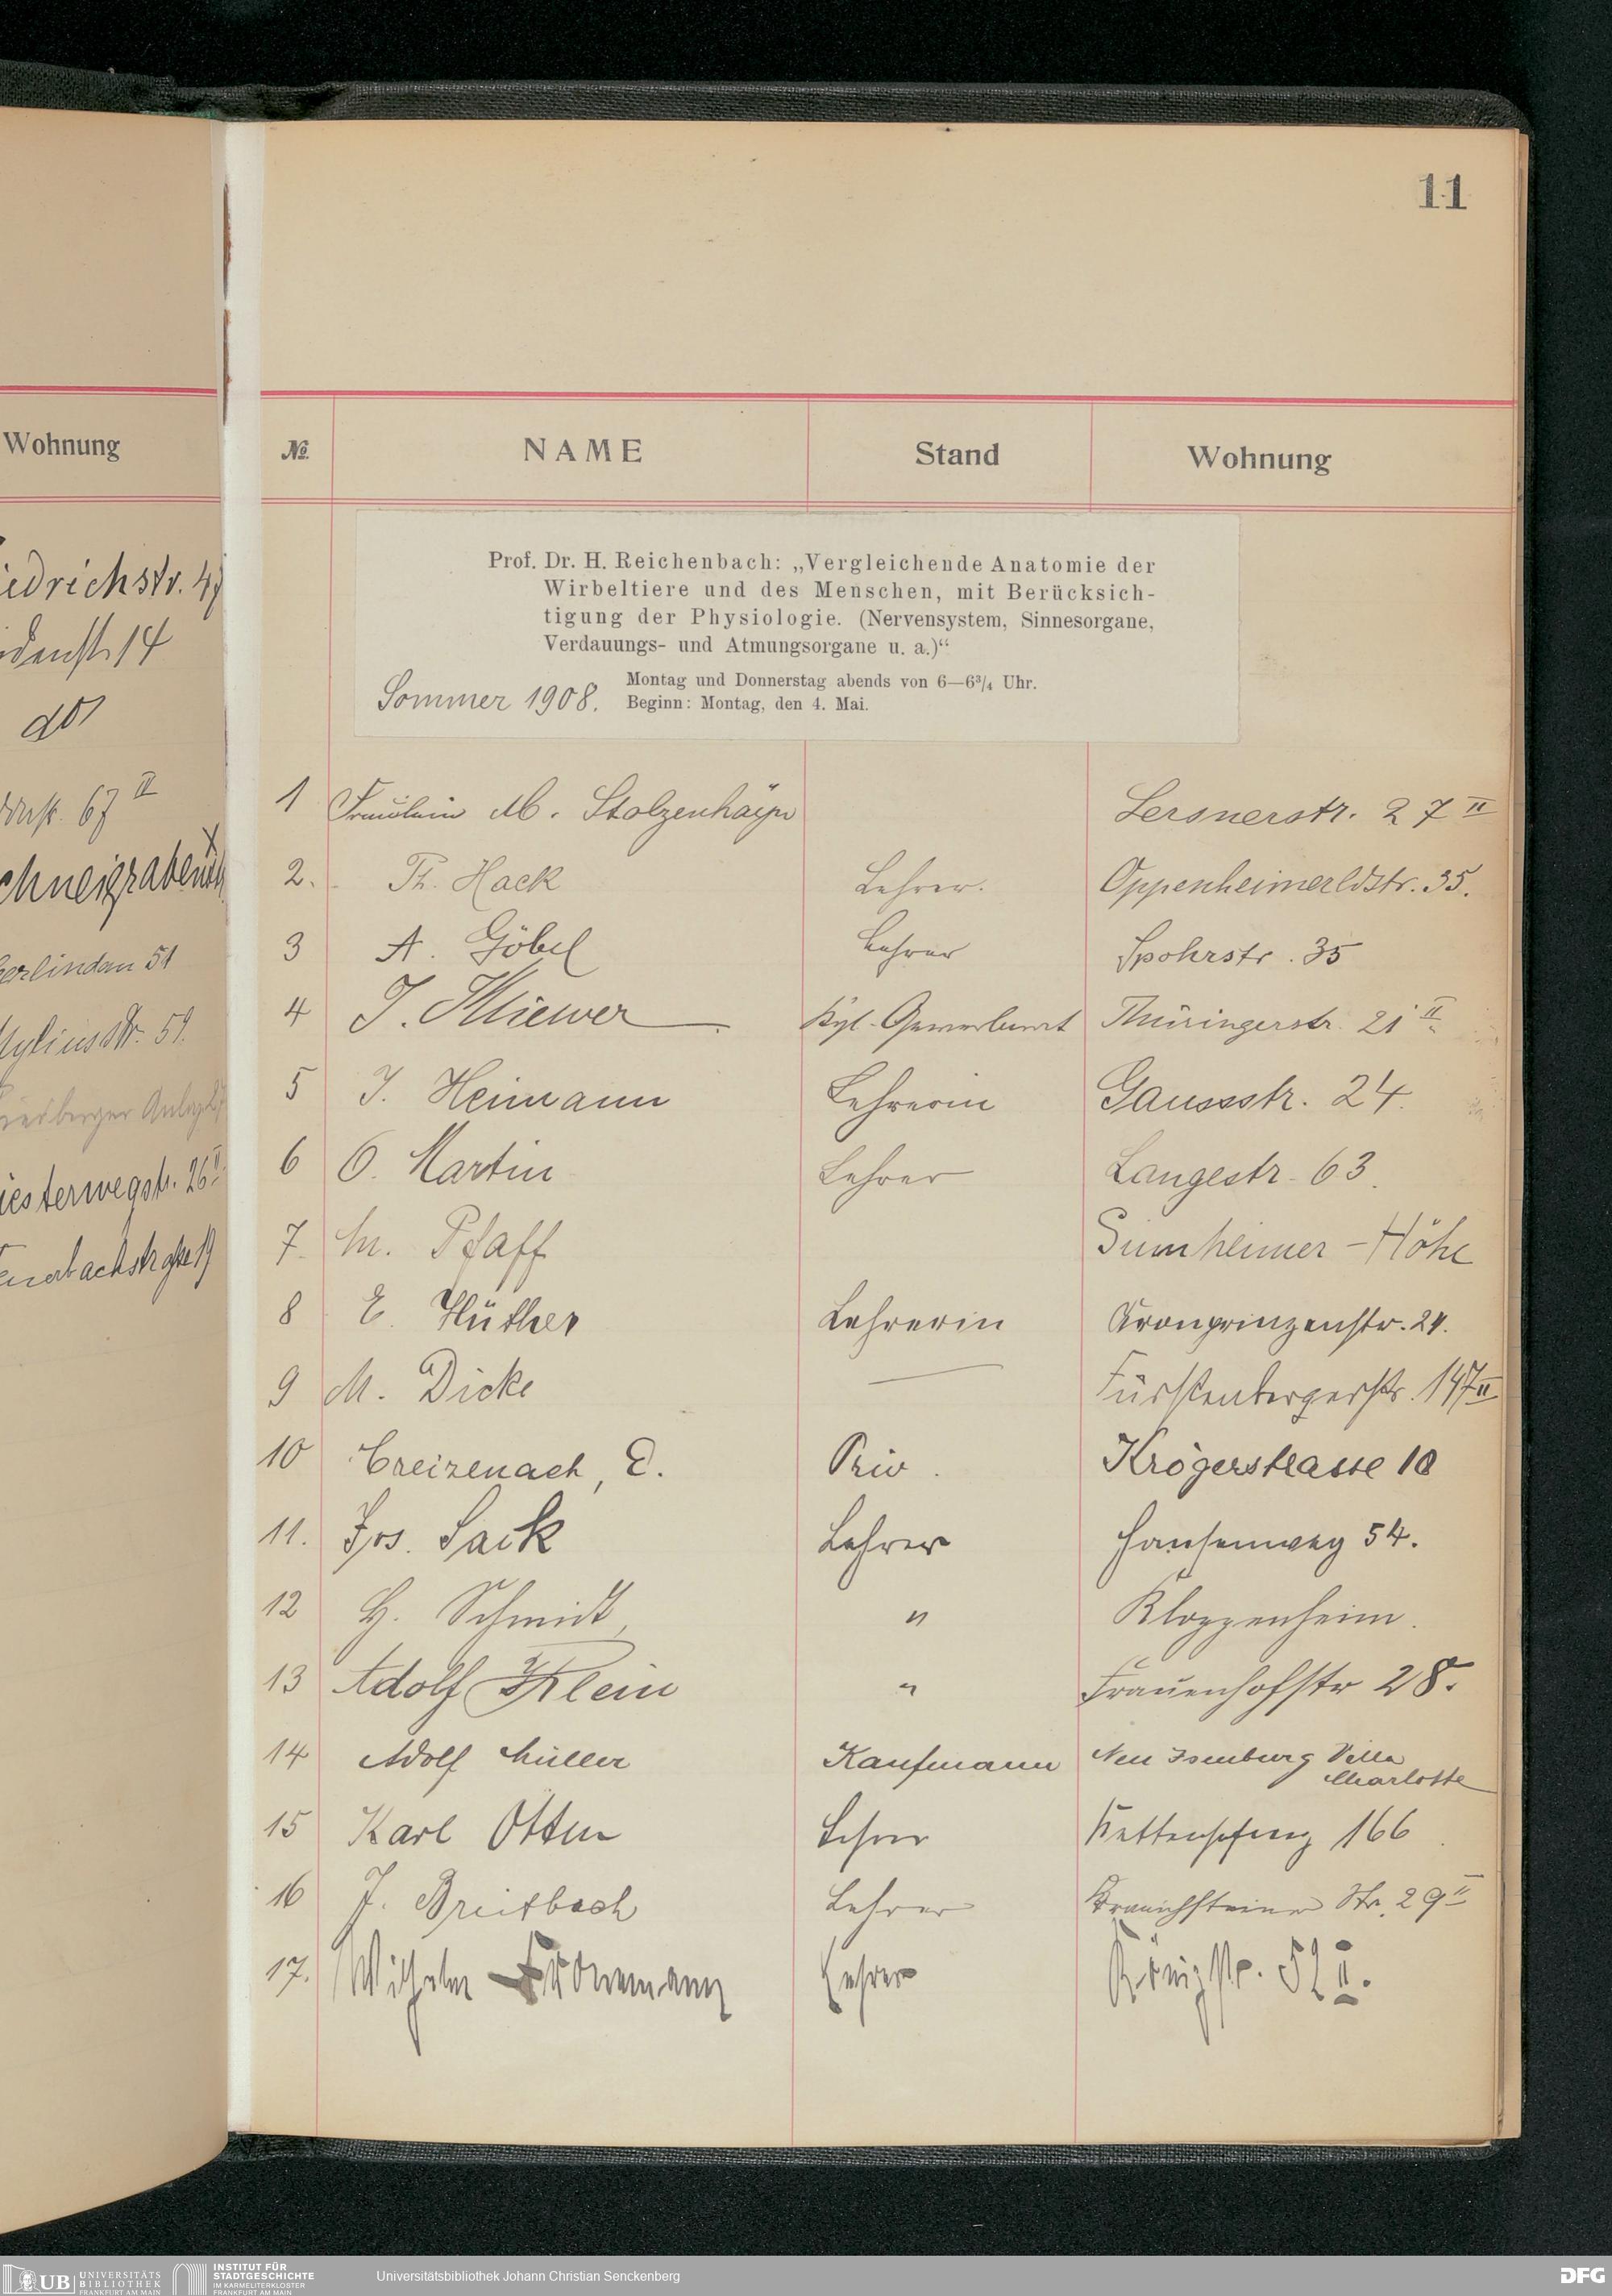 11
Wohnung
№ NAME Stand Wohnung
Prof. Dr. H. Reichenbach: „Vergleichende Anatomie der
Wirbeltiere und des Menschen, mit Berücksich-
tigung der Physiologie. (Nervensystem, Sinnesorgane,
Verdauungs- und Atmungsorgane u. a.)“
Montag und Donnerstag abends von 6—6¾ Uhr.
Sommer 1908. Beginn: Montag, den 4. Mai.
1 Fräulein M. Stolzenhayn Lersnerstr. 27 II
2. Th. Hack Lehrer. Oppenheimerldstr. 35.
3 A. Göbel Lehrer Spohrstr. 35
4 J. Kliewer Kgl. Gewerberat Thüringerstr. 21 II
5 J. Heimann Lehrerin Gaussstr. 24.
6 O. Martin Lehrer Langestr. 63.
7. M. Pfaff Höhe
8 E. Hüther Lehrerin Kronprinzenstr. 24.
9 M. Dicke — Fürstenbergerstr. 147 II
10 Creizenach, E. Priv. Krögerstrasse 10
11. Jos. Sack Lehrer 54.
12 H. Schmidt " Kloppenheim.
13 Adolf Klein " Frauenhofstr 28.
14 Adolf Müller Kaufmann Neu Isenburg Villa
Charlotte
15 Karl Otten Lehrer 166
16 J. Breitbach Lehrer Kranichsteiner Str. 29 II
17. Wilhelm Lehrer Königstr. 52 II.
iedrichstr. 47
14
do
67 II
51
Myliusstr. 59.
iesterwegstr. 26 II
UB UNIVERSITÄTS
BIBLIOTHEK
FRANKFURT AM MAIN
INSTITUT FÜR
STADTGESCHICHTE
IM KARMELITERKLOSTER
FRANKFURT AM MAIN
Universitätsbibliothek Johann Christian Senckenberg
DFG